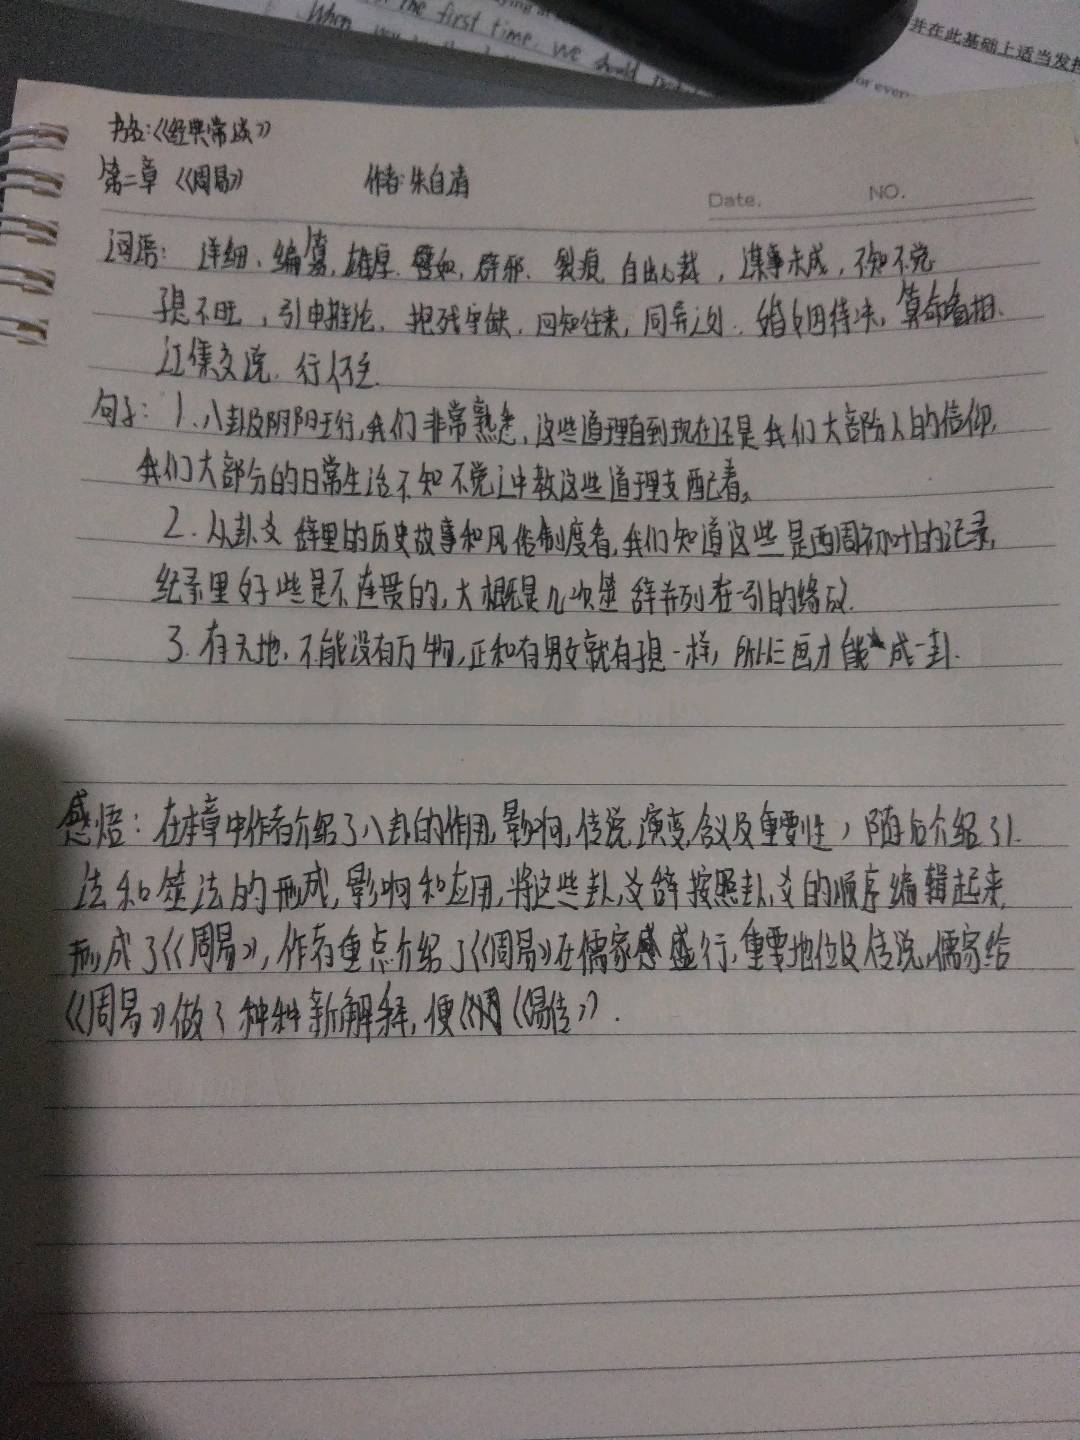 the first time, we should
When
并在此基础上适当发挥
for every
书名:《经典常谈》
第二章 《周易》 作者:朱自清
Date. NO.
词语: 详细、编纂, 雄厚、譬如, 辟邪、裂痕 自出心裁, 谋事未成, 不知不觉
子息不旺, 引申推论、抱残守缺、回知往来, 同异之处、婚姻待决、算命看相、
行人何在.
句子: 1. 八卦及阴阳五行,我们非常熟悉,这些道理直到现在还是我们大部分人的信仰,
我们大部分的日常生活不知不觉之中教这些道理支配着。
2. 从卦爻辞里的历史故事和风俗制度看,我们知道这些是西周初叶的记录,
纪录里好些是不连贯的,大概是几次筮辞并列在一引的缘故.
3. 有天地,不能没有万物,正和有男女就有子息一样,所以三画才能成一卦.
感悟: 在本章中作者介绍了八卦的作用,影响,传说,演变,含义及重要性,随后介绍了卜
法和筮法的形成,影响和应用,将这些卦,爻辞按照卦,爻的顺序编辑起来,
形成了《周易》,作者重点介绍了《周易》在儒家盛行,重要地位及传说,儒家给
《周易》做了种种新解释,便《易传》.